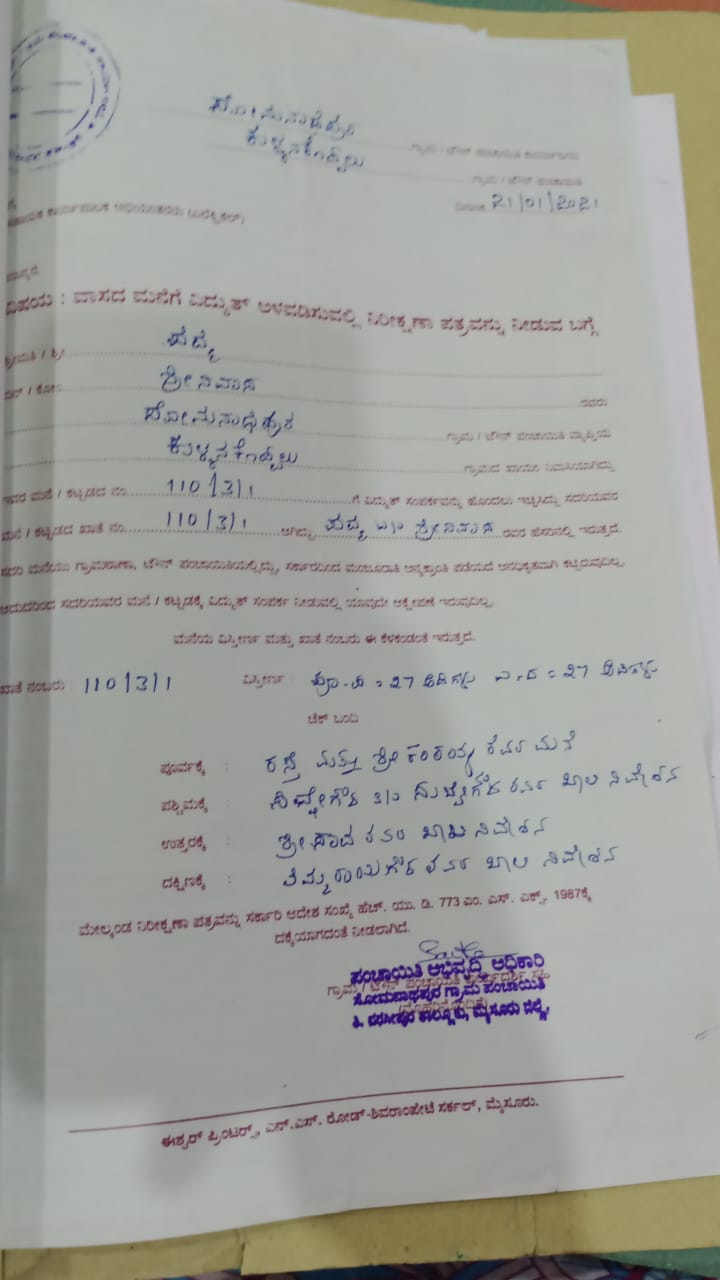 ಸೋಮನಾಥಪುರ ಗ್ರಾಮ / ಟೌನ್ ಪಂಚಾಯಿತಿ ಕಾರ್ಯಾಲಯ
ಕುಳ್ಳನಕೊಪ್ಪಲು ಗ್ರಾಮ / ಟೌನ್ ಪಂಚಾಯಿತಿ
ದಿನಾಂಕ 21/01/2021
ಸಹಾಯಕ ಕಾರ್ಯಪಾಲಕ ಅಭಿಯಂತರರು (ಎಲೆಕ್ಟ್ರಿಕಲ್)
ಮಾನ್ಯರೆ,
ವಿಷಯ : ವಾಸದ ಮನೆಗೆ ವಿದ್ಯುತ್ ಅಳವಡಿಸುವಲ್ಲಿ ನಿರೀಕ್ಷಣಾ ಪತ್ರವನ್ನು ನೀಡುವ ಬಗ್ಗೆ
ಶ್ರೀಮತಿ / ಶ್ರೀ ಪದ್ಮ
ಬಿನ್ / ಕೋಂ ಶ್ರೀನಿವಾಸ ರವರು
ಸೋಮನಾಥಪುರ ಗ್ರಾಮ / ಟೌನ್ ಪಂಚಾಯಿತಿ ವ್ಯಾಪ್ತಿಯ
ಕುಳ್ಳನಕೊಪ್ಪಲು ಗ್ರಾಮದ ಖಾಯಂ ನಿವಾಸಿಯಾಗಿದ್ದು
ಇವರ ಮನೆ / ಕಟ್ಟಡದ ನಂ. 110/3/1 ಗೆ ವಿದ್ಯುತ್ ಸಂಪರ್ಕವನ್ನು ಹೊಂದಲು ಇಚ್ಛಿಸಿದ್ದು ಸದರಿಯವರ
ಮನೆ / ಕಟ್ಟಡದ ಖಾತೆ ನಂ. 110/3/1 ಆಗಿದ್ದು ಪದ್ಮ w/o ಶ್ರೀನಿವಾಸ ರವರ ಹೆಸರಿನಲ್ಲಿ ಇರುತ್ತದೆ.
ಸದರಿ ಮನೆಯು ಗ್ರಾಮಠಾಣಾ, ಟೌನ್ ಪಂಚಾಯಿತಿಯಲ್ಲಿದ್ದು, ಸರ್ಕಾರದಿಂದ ಮಂಜೂರಾತಿ ಅನ್ಯಕ್ರಾಂತಿ ಪಡೆಯದೆ ಅನಧಿಕೃತವಾಗಿ ಕಟ್ಟಿರುವುದಿಲ್ಲ.
ಆದುದರಿಂದ ಸದರಿಯವರ ಮನೆ / ಕಟ್ಟಡಕ್ಕೆ ವಿದ್ಯುತ್ ಸಂಪರ್ಕ ನೀಡುವಲ್ಲಿ ಯಾವುದೇ ಆಕ್ಷೇಪಣೆ ಇರುವುದಿಲ್ಲ.
ಮನೆಯ ವಿಸ್ತೀರ್ಣ ಮತ್ತು ಖಾತೆ ನಂಬರು ಈ ಕೆಳಕಂಡಂತೆ ಇರುತ್ತದೆ.
ಖಾತೆ ನಂಬರು : 110/3/1 ವಿಸ್ತೀರ್ಣ : ಪೂ-ಪ = 27 ಅಡಿಗಳು ಉ.ದ = 27 ಅಡಿಗಳು
ಚೆಕ್ ಬಂದಿ
ಪೂರ್ವಕ್ಕೆ : ರಸ್ತೆ ಮತ್ತು ಶ್ರೀಕಂಠಯ್ಯ ರವರ ಮನೆ
ಪಶ್ಚಿಮಕ್ಕೆ : ಸಿದ್ದೇಗೌಡ s/o ಪುಟ್ಟೇಗೌಡ ರವರ ಖಾಲಿ ನಿವೇಶನ
ಉತ್ತರಕ್ಕೆ : ರವರ ಖಾಲಿ ನಿವೇಶನ
ದಕ್ಷಿಣಕ್ಕೆ : ತಿಮ್ಮರಾಯಿಗೌಡ ರವರ ಖಾಲಿ ನಿವೇಶನ
ಮೇಲ್ಕಂಡ ನಿರೀಕ್ಷಣಾ ಪತ್ರವನ್ನು ಸರ್ಕಾರಿ ಆದೇಶ ಸಂಖ್ಯೆ ಹೆಚ್. ಯು. ಡಿ. 773 ಎಂ. ಎಸ್. ಎಕ್ಸ್. 1987ಕ್ಕೆ
ದಕ್ಕೆಯಾಗದಂತೆ ನೀಡಲಾಗಿದೆ.
ಪಂಚಾಯಿತಿ ಅಭಿವೃದ್ಧಿ ಅಧಿಕಾರಿ
ಸೋಮನಾಥಪುರ ಗ್ರಾಮ ಪಂಚಾಯಿತಿ
ತಿ. ನರಸೀಪುರ ತಾಲ್ಲೂಕು, ಮೈಸೂರು ಜಿಲ್ಲೆ.
ಈಶ್ವರ್ ಪ್ರಿಂಟರ್ಸ್, ಎನ್.ಎಸ್. ರೋಡ್-ಶಿವರಾಂಪೇಟೆ ಸರ್ಕಲ್, ಮೈಸೂರು.